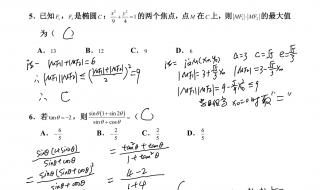 5. 已知 F₁, F₂ 是椭圆 C: x²/9 + y²/4 = 1 的两个焦点, 点 M 在 C 上, 则 |MF₁|·|MF₂| 的最大值
为 ( C )
A. 13 B. 12 C. 9 D. 6
|MF₁|+|MF₂|=6
|MF₁||MF₂| ≤ (|MF₁|+|MF₂|/2)² = 9
∴ C
a=3 c=√5 e=√5/3
|MF₁|=3+√5/3x₀ |MF₂|=3-√5/3x₀
|MF₁||MF₂|=9-5/9x₀² ≤ 9
x₀=0 时取"="
6. 若 tanθ=-2, 则 sinθ(1+sin2θ)/(sinθ+cosθ) = ( C )
A. -6/5 B. -2/5 C. 2/5 D. 6/5
sinθ(1+sin2θ)/(sinθ+cosθ) = (tan²θ+tanθ)/(1+tan²θ)
= (4-2)/(1+4)